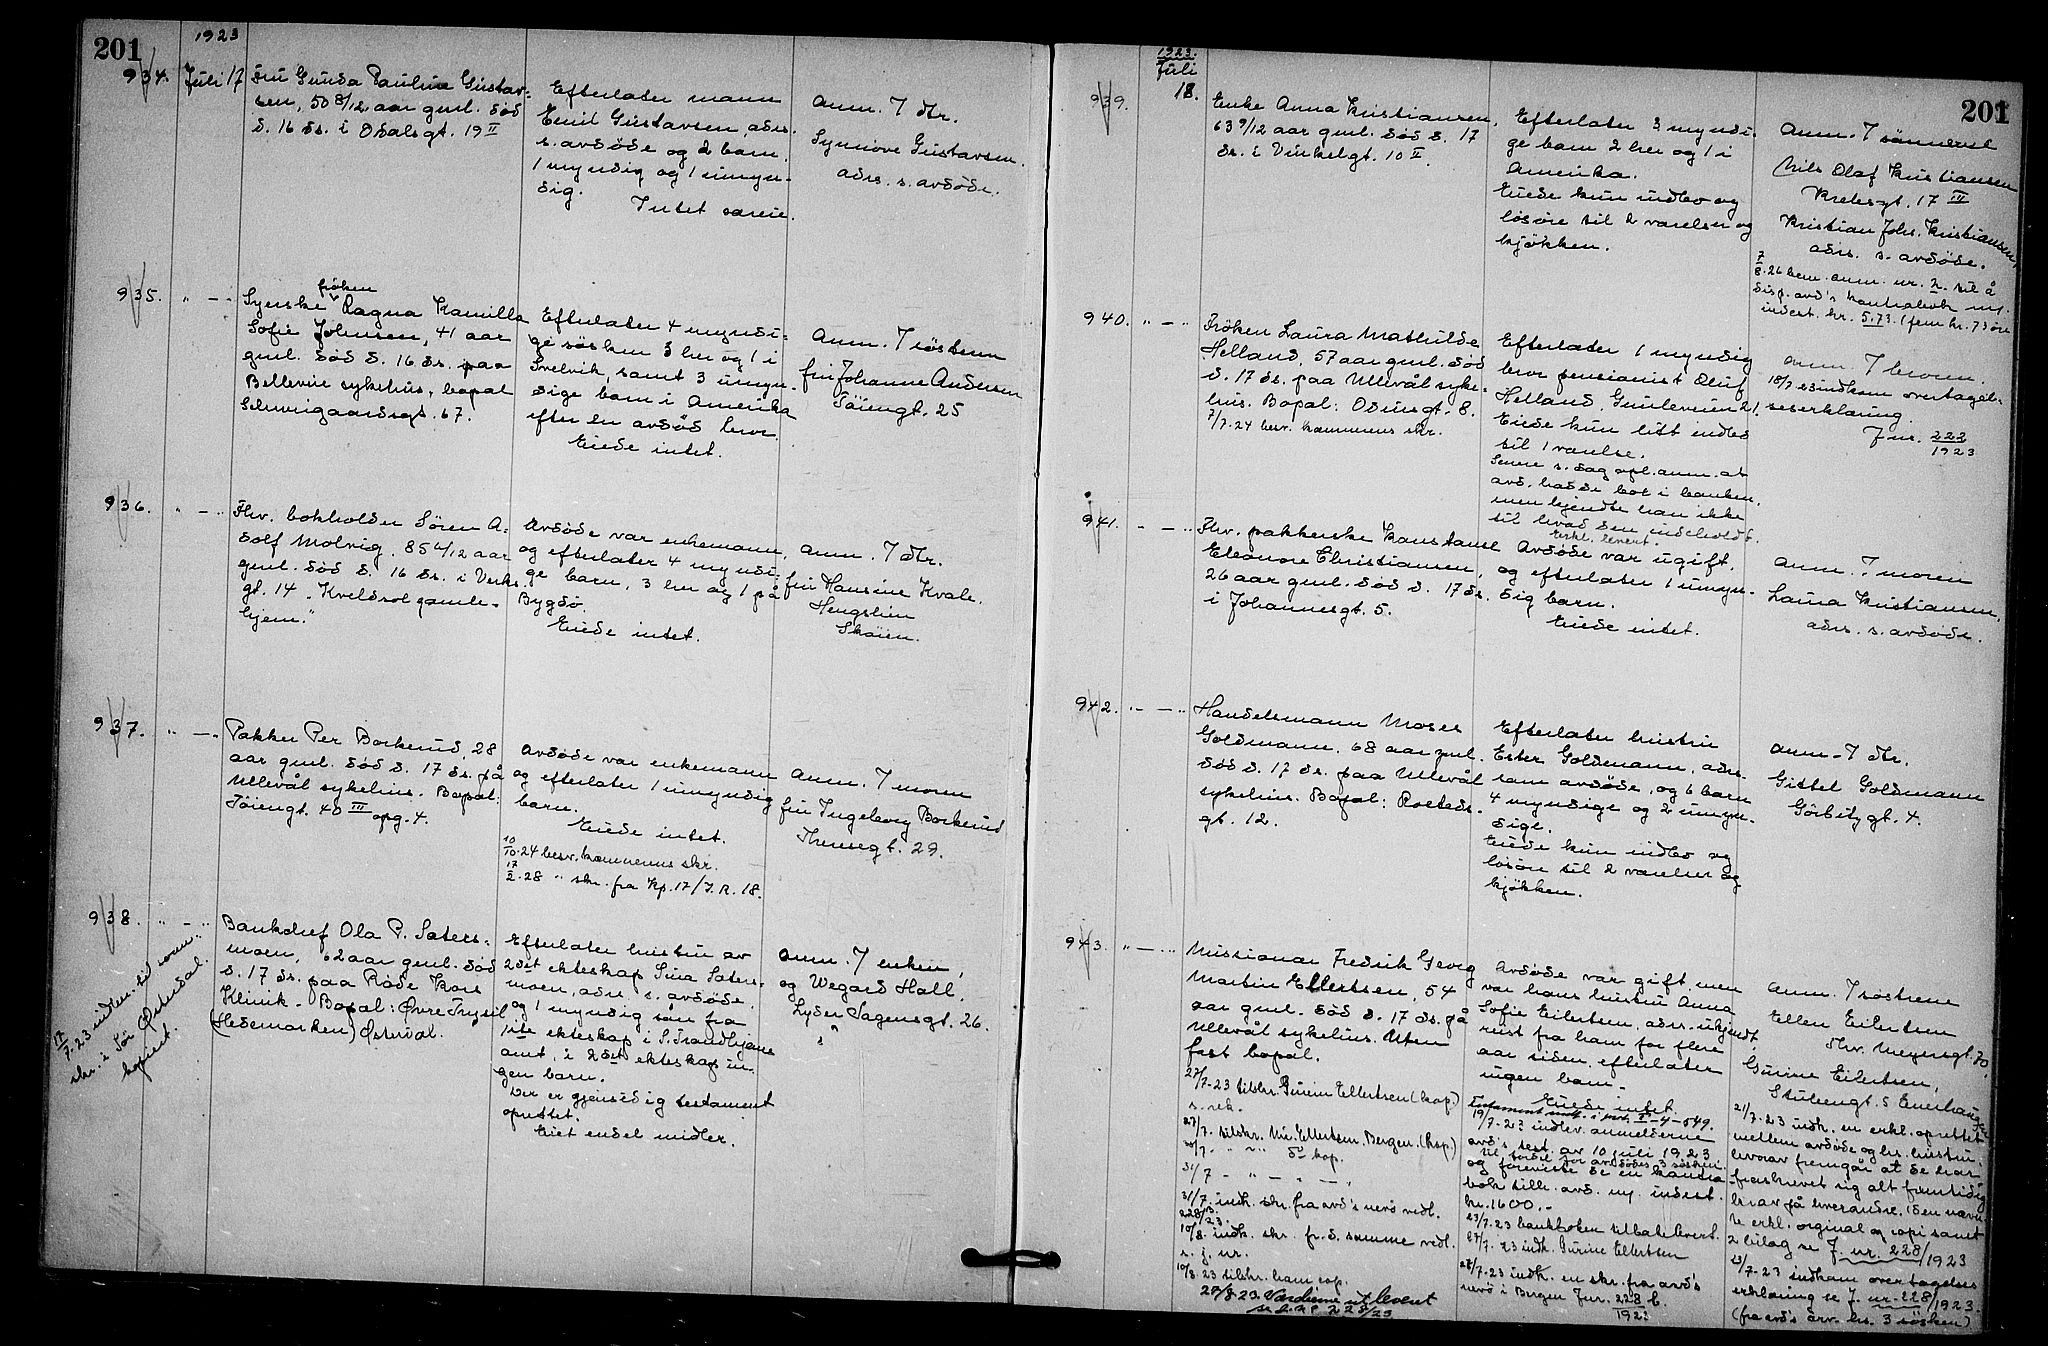 201
1923
934. Juli 17
Fru Gunda Pauline Gustav-
sen, 50 8/12 aar gml. död
d. 16 ds. i Odalsgt. 19 II
Efterlater mann
Emil Gustavsen, adrs.
s. avdöde og 2 barn,
1 myndig og 1 umyn-
dig.
Intet særeie.
Anm. 7 dtr.
Synnöve Gustavsen.
adrs. s. avdöde.
935. " — "
fröken
Syerske Ragna Kamilla
Sofie Johnsen, 41 aar
gml. död d. 16 ds. paa
Bellevue sykehus, bopæl
Schweigaardsgt. 67.
Efterlater 4 myndi-
ge sösken 3 her og 1 i
Svelvik, samt 3 umyn-
dige barn i Amerika
efter en avdöd bror.
Eiede intet.
Anm. 7 söstern
fru Johanne Andersen
Töiengt. 25
936. " — "
Fhv. bokholder Sören A-
dolf Molvig, 85 4/12 aar
gml. död d. 16 ds. i Verks-
gt. 14 "Kveldsol gamle-
hjem."
Avdöde var enkemann,
og efterlater 4 myndi-
ge barn, 3 her og 1 på
Bygdö.
Eiede intet.
Anm. 7 dtr.
fru Hansine Kvale.
Hengslien
Sköien.
937. " — "
Pakker Per Borkerud, 28
aar gml. död d. 17 ds. på
Ullevål sykehus. Bopæl:
Töiengt. 40 III opg. 4.
Avdöde var enkemann
og efterlater 1 umyndig
barn.
Eiede intet.
10/10.24 besv. kæmnerens skr.
17/2.28 " skr. fra Kp. 17/J.R. 18.
Anm. 7 moren
fru Ingeborg Borkerud
Thersegt. 29.
938. " — "
17/7.23 indlev. tid som
skr. i Sör Österdal.
kopiert.
Bankchef Ola P. Sæters-
moen, 62 aar gml. död
d. 17 ds. paa Röde Kors
Klinik. Bopæl: Övre Trysil
(Hedemarken) Österdal.
Efterlater hustru av
2det ekteskap Sina Sæters-
moen, adr. s. avdöde,
og 1 myndig sön fra
1ste ekteskap i S. Trondhjems
amt, i 2det ekteskap in-
gen barn.
Der er gjensidig testament
oprettet.
Eiet endel midler.
Anm. 7 enken,
og Wegard Hall.
Lyder Sagensgt. 26.
201
1923.
Juli
939. 18.
Enke Anna Kristiansen,
63 9/12 aar gml. död d. 17
ds. i Vinkelgt. 10 II.
Efterlater 3 myndi-
ge barn 2 her og 1 i
Amerika.
Eiede kun indbo og
lösöre til 2 værelser og
kjökken.
Anm. 7 sönnerne
Nils Olaf Kristiansen
Krebsgt. 17 III
Kristian Johs. Kristiansen,
adrs. s. avdöde.
7/8.26 bem. anm. nr. 2. til å
disp. avd's kontrabok m/
indest. kr. 5.73. (fem kr. 73 öre
940. " — "
Fröken Laura Mathilde
Helland, 57 aar gml. död
d. 17 ds. paa Ullevål syke-
hus. Bopæl: Odinsgt. 8.
7/7.24 besv. kæmnerens skr.
Efterlater 1 myndig
bror pensionist Oluf
Helland, Gimleveien 21.
Eiede kun litt indbo
til 1 værelse.
Senere s. dag opl. anm. at
avd. hadde bok i banken,
men kjendte han ikke
til hvad den indeholdt.
Erkl. levert.
Anm. 7 broren.
18/7 23 indkom overtagel-
seserklæring
J.nr. 222/1923
941. " — "
Fhv. pakkerske Konstanse
Eleonore Christiansen,
26 aar gml. död d. 17 ds.
i Johannesgt. 5.
Avdöde var ugift,
og efterlater 1 umyn-
dig barn.
Eiede intet.
Anm. 7 moren
Laura Kristiansen,
adrs. s. avdöde.
942. " — "
Handelsmann Moses
Goldmann. 68 aar gml.
död d. 17 ds. paa Ullevål
sykehus. Bopæl: Rosteds-
gt. 12.
Efterlater hustru
Ester Goldmann, adrs.
som avdöde, og 6 barn
4 myndige og 2 umyn-
dige.
Eiede kun indbo og
lösöre til 2 værelser og
kjökken.
Anm. 7 dtr.
Gittel Goldmann
Görbitzgt. 4.
943. " — "
Missionær Fredrik Georg
Martin Ellertsen, 54
aar gml. död d. 17 ds. på
Ullevål sykehus. Uten
fast bopæl.
27/7.23 tilskr. Gurine Ellertsen (kop.)
s. rek.
27/7. tilskr. Nic. Ellertsen Bergen. (kop.)
30/7. " " do kop.
31/7 — " — " — " —
31/7. indk. skr. fra avd's nevö vedl.
228/23.
10/8. indk. skr. fr. d. samme vedl.
s. j. nr.
10/8.23 tilskr. ham cop.
27/8.23 Verdierne utlevert
se J. nr. 228/23
Avdöde var gift, men
var hans hustru Anna
Sofie Eilertsen, adrs. ukjendt,
reist fra ham for flere
aar siden, efterlater
ingen barn.
Eiede intet.
Testament mott. i prot. I-4-549.
19/7.23 indlev. anmelderne
avd's test. av 10 juli 1923
til fordel for avdödes 3 söskne
og foreviste de en bankkontra-
bok tilh. avd. m/ indest.
kr. 1600.-
23/7.23 bankboken tilbakelevert.
27/7.23 indk. Gurine Ellertsen
28/7.23 indk. en skr. fra avd's
nevö i Bergen J.nr. 228 b./1923
Anm. 7 söstrene
Ellen Eilertsen
Thv. Meyersgt. 70.
Gurine Eilertsen,
Stuleengt. 5 Enerhaugen
21/7.23 indk. en erkl. oprettet
mellem avdöde og hs. hustru,
hvorav fremgår at de har
fraskrevet sig alt fremtidig
krav på hverandre. Den nævn-
te erkl. original og copi samt
2 bilag se J. nr. 228/1923
23/7.23 indkom overtagelses
erklæring se J. nr. 228/1923.
(fra avd's arv. hs. 3 sösken)